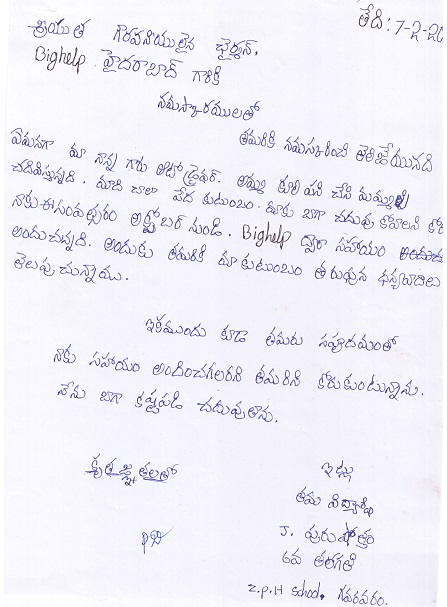 తేది: 7-2-20
శ్రీయుత గౌరవనీయులైన ఛైర్మన్,
Bighelp హైదరాబాద్ గారికి
నమస్కారములతో
తమరికి నమస్కరించి తెలియజేయునది
ఏమనగా మా నాన్న గారు ఆటో డ్రైవర్. అమ్మ కూలి పని చేసి మమ్మల్ని
చదివిస్తున్నది. మాది చాలా పేద కుటుంబం. మాకు బాగా చదువు కోవాలని కోరి
నాకు ఈ సంవత్సరం అక్టోబర్ నుండి. Bighelp ద్వారా సహాయం
అందుచున్నది. అందుకు తమరికి మా కుటుంబం తరుఫున ధన్యవాదాలు
తెలుపుచున్నాము.
ఇకముందు కూడా తమరు సహృదయంతో
నాకు సహాయం అందించగలరని తమరిని కోరుకుంటున్నాను.
నేను బాగా కష్టపడి చదువుతాను.
కృతజ్ఞతలతో
ఇట్లు
తమ విద్యార్థి
J. పురుషోత్తం
6వ తరగతి
Z.P.H School, గవరవరం.